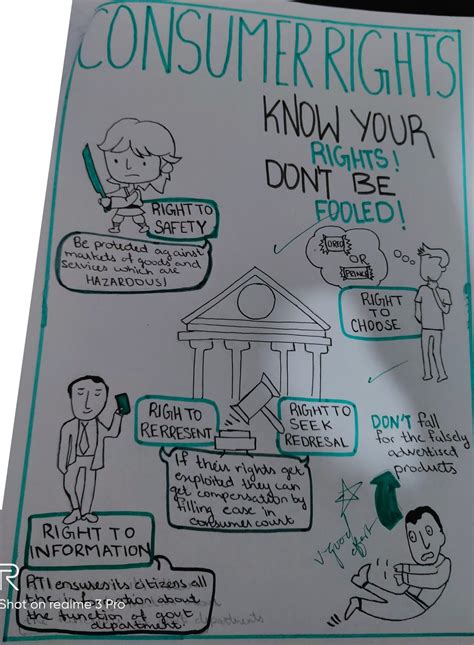 CONSUMER RIGHTS
KNOW YOUR
RIGHTS!
DON'T BE
FOOLED!
RIGHT TO
SAFETY
Be protected against
markets of goods and
services which are
HAZARDOUS!
OREO
OR
PRINCE
RIGHT
TO
CHOOSE
RIGH TO
RERRESENT
RIGHT TO
SEEK
REDRESAL
If their rights get
exploited they can
get compensation by
filling case in
consumer court
DON'T fall
for the falsely
advertised
products
V-good
effort
RIGHT TO
INFORMATION
RTI ensures its citizens all
the information about
the function of govt
department.
departments
R
Shot on realme 3 Pro